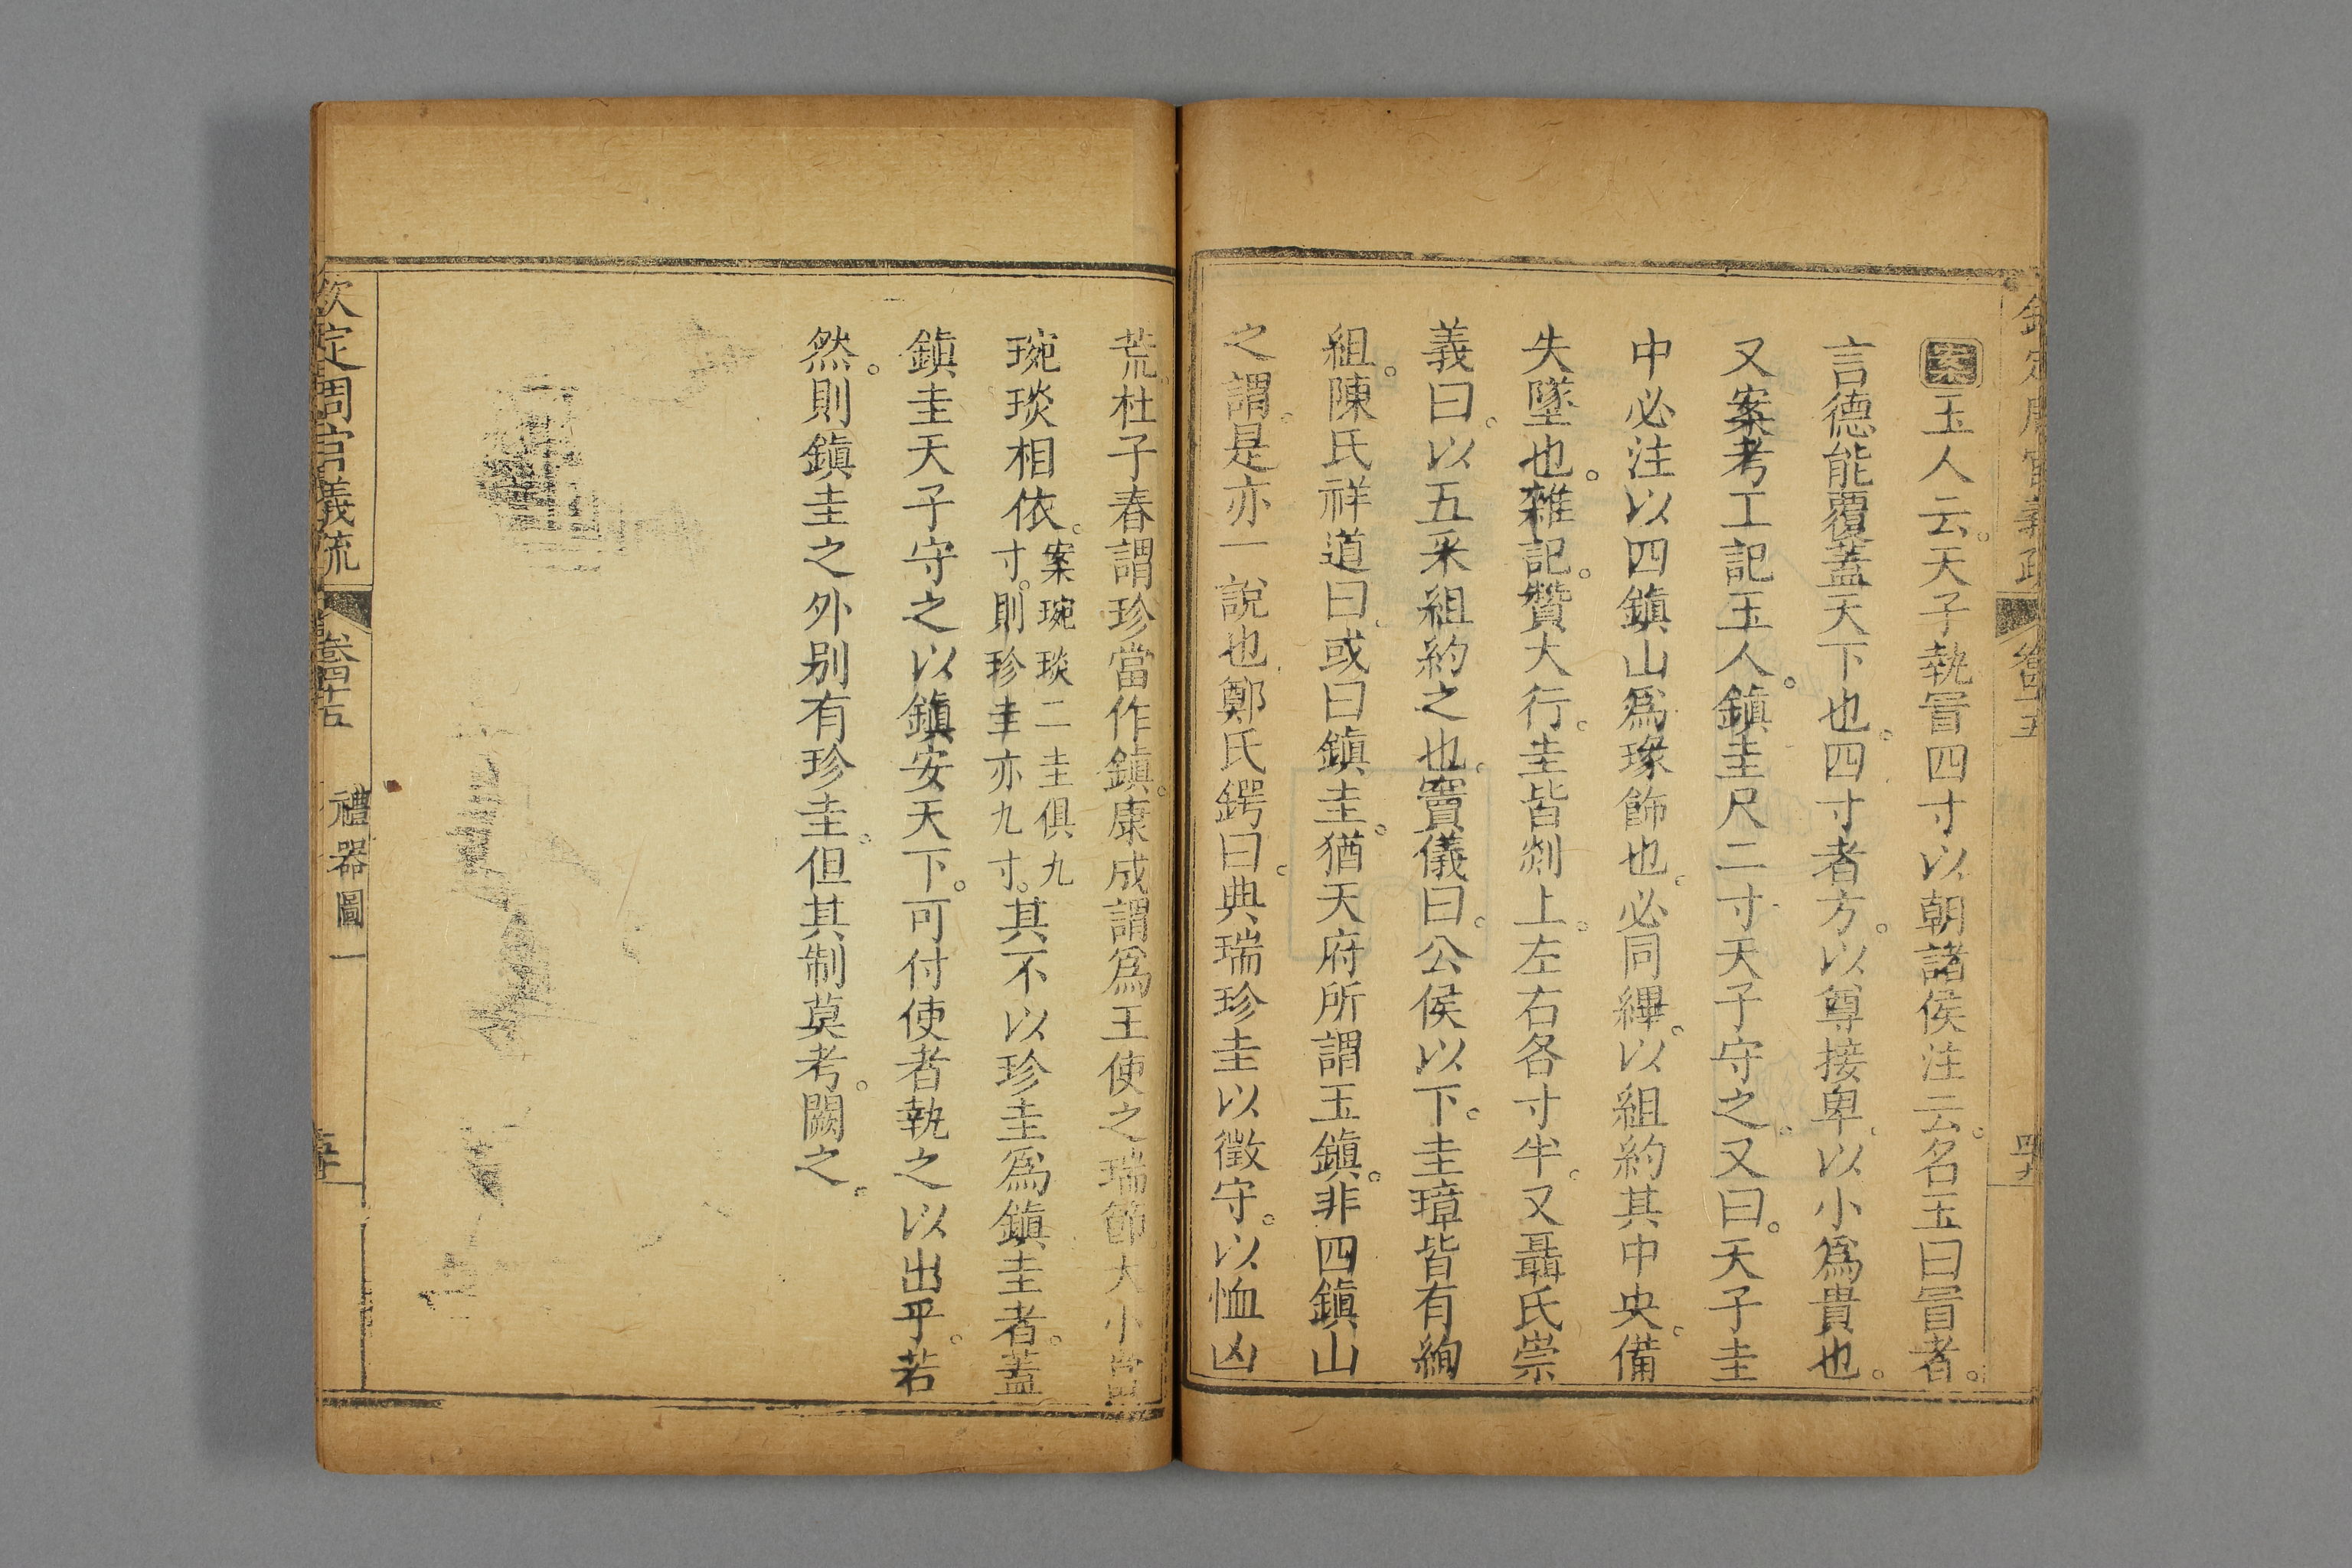 案玉人云。天子執冒四寸以朝諸侯注云。名玉曰冒者。
言德能覆蓋天下也。四寸者方。以尊接卑。以小爲貴也。
又案考工記玉人。鎮圭尺二寸天子守之。又曰。天子圭
中必注以四鎮山爲瑑飾也。必同繂。以組約其中央。備
失墜也。雜記。贊大行。圭皆剡上。左右各寸半。又聶氏崇
義曰。以五采組約之也。竇儀曰。公侯以下。圭璋皆有絢
組。陳氏祥道曰。或曰鎮圭。猶天府所謂玉鎮。非四鎮山
之謂。是亦一說也鄭氏鍔曰。典瑞珍圭以徵守。以恤凶
荒。杜子春謂珍當作鎮。康成謂爲王使之瑞節大小當
琬琰相依。案琬琰二圭俱九寸。則珍圭亦九寸。其不以珍圭爲鎮圭者。蓋
鎮圭天子守之以鎮安天下。可付使者執之以出乎。若
然。則鎮圭之外别有珍圭。但其制莫考。闕之。
欽定周官義疏
禮器圖一